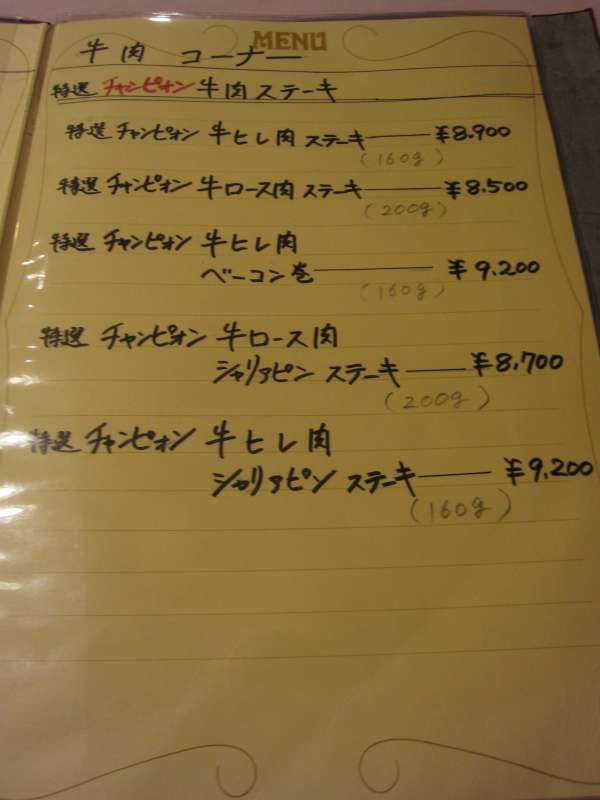 MENU
牛肉 コーナー
特選 チャンピオン 牛肉ステーキ
特選 チャンピオン 牛ヒレ肉 ステーキ ¥8.900
(160g)
特選 チャンピオン 牛ロース肉 ステーキ ¥8.500
(200g)
特選 チャンピオン 牛ヒレ肉
ベーコン巻 ¥9.200
(160g)
特選 チャンピオン 牛ロース肉
シャリアピン ステーキ ¥8.700
(200g)
特選 チャンピオン 牛ヒレ肉
シャリアピン ステーキ ¥9.200
(160g)